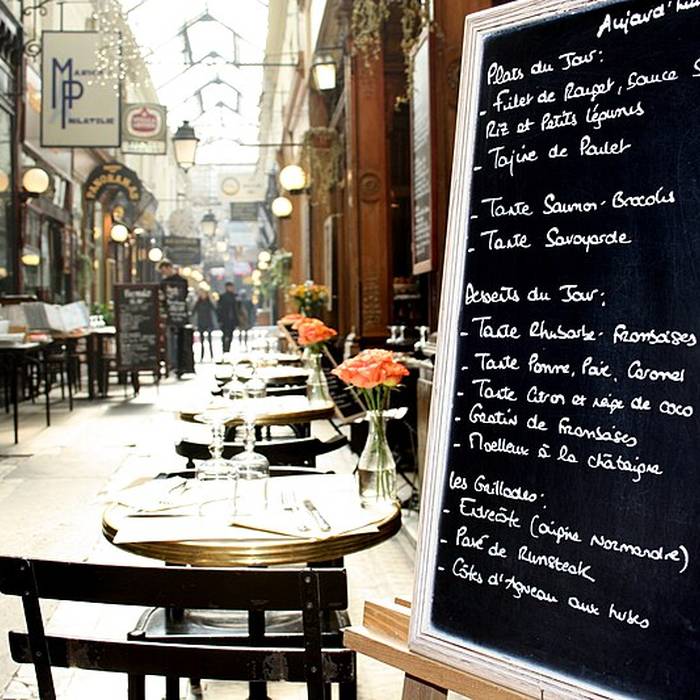 Aujourd'hui
Plats du Jour:
- Filet de Rouget, Sauce S
Riz et Petits légumes
- Tajine de Poulet
- Tarte Saumon-Brocolis
- Tarte Savoyarde
Desserts du Jour:
- Tarte Rhubarbe-Framboises
- Tarte Pomme, Poire, Caramel
- Tarte Citron et neige de coco
- Gratin de Framboises
- Moelleux à la châtaigne
Les Grillades:
- Entrecôte (origine Normandie)
- Pavé de Rumsteak
- Côtes d'Agneau aux herbes
MP
PHILATELIE
PANORAMAS